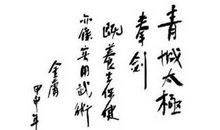 青城太極
拳劍
既養生保健
亦係实用武術
金庸
甲申年